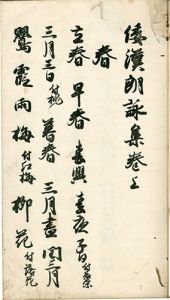 倭漢朗詠集巻上
春
立春 早春 春興 春夜 子日付若菜
三月三日付桃 暮春 三月盡 閏三月
鶯 霞 雨 梅付紅梅 柳 花付落花